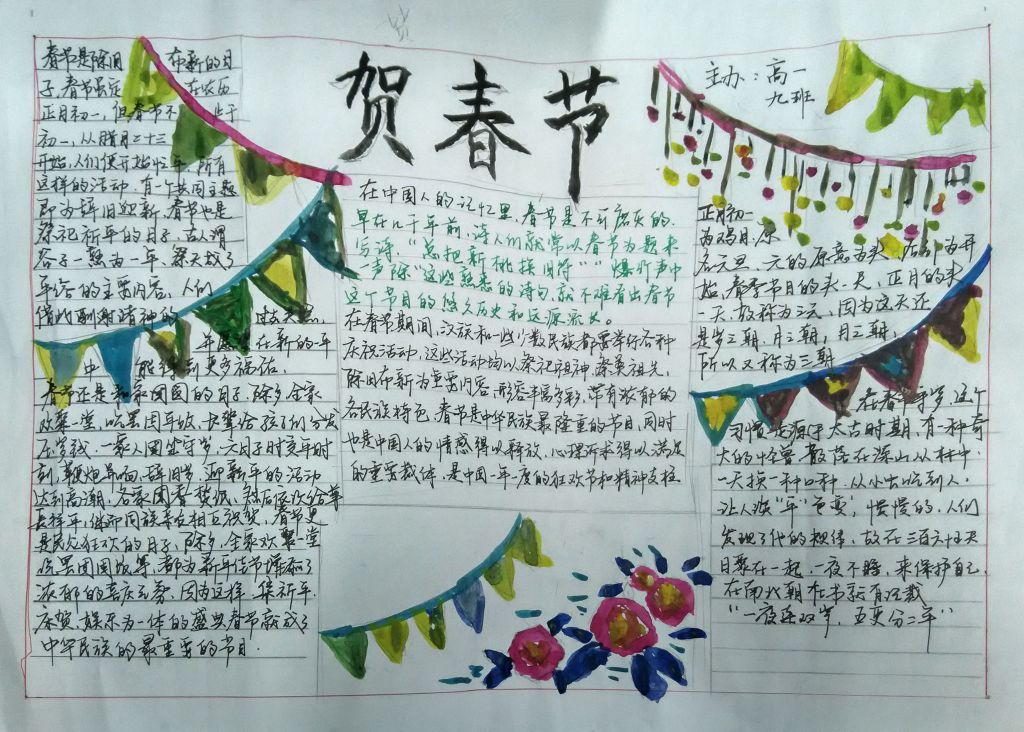 贺春节
主办：高一
九班
春节是除旧布新的日
子，春节虽定在农历
正月初一，但春节不止于
初一，从腊月二十三
开始，人们便开始忙年，所有
这样的活动，有一个共同主题
即为辞旧迎新，春节也是
祭祀祈年的日子，古人谓
谷子一熟为一年，
年谷的主要内容，人们
借此酬谢诸神的过去
年在新的一年
中能得到更多福佑。
春节还是和家团圆的日子，除夕，全家
欢聚一堂，吃罢团年饭，长辈给孩子们分发
压岁钱，一家人团坐守岁，元日子时交年时
刻，鞭炮齐响，辞旧岁，迎新年的活动
达到高潮，各家焚香致礼，然后依次给尊
长拜年，继而同族亲友相互祝贺，春节更
是民众狂欢的日子，除夕，全家欢聚一堂
吃罢团圆饭等，都为新年佳节增添了
浓郁的喜庆气氛，因为这样，集祈年
庆贺，娱乐为一体的盛典春节就成了
中华民族的最重要的节日．
在中国人的记忆里，春节是不可磨灭的．
早在几千年前，诗人们就常以春节为题来
写诗，“总把新桃换旧符”“爆竹声中
一声除”这些熟悉的诗句，就不难看出春节
这个节日的悠久历史和这源流长。
在春节期间，汉族和一些少数民族都要举行各种
庆祝活动，这些活动均以祭祀祖神，祭奠祖先，
除旧布新为重要内容，形容丰富多彩，带有浓郁的
各民族特色，春节是中华民族最隆重的节日，同时
也是中国人的情感得以释放，心理诉求得以满足
的重要载体，是中国一年一度的狂欢节和精神支柱
正月初一
为鸡日，原
名元旦，元的原意为头，后为开
始，春季节日的头一天，正月的头
一天，故称为三元，因为这天还
是岁之朝，月之朝，日之朝，
所以又称为三朝
在春节守岁这个
习惯是源于太古时期，有一种奇
大的怪兽，散落在深山丛林中．
一天换一种口种，从小虫吃到人，
让人谈“年”色变，慢慢的，人们
发现了他的规律，故在三百六十五天
日聚在一起，一夜不睡，来保护自己．
在南北朝在书就有记载
“一夜连双岁，五更分二年”